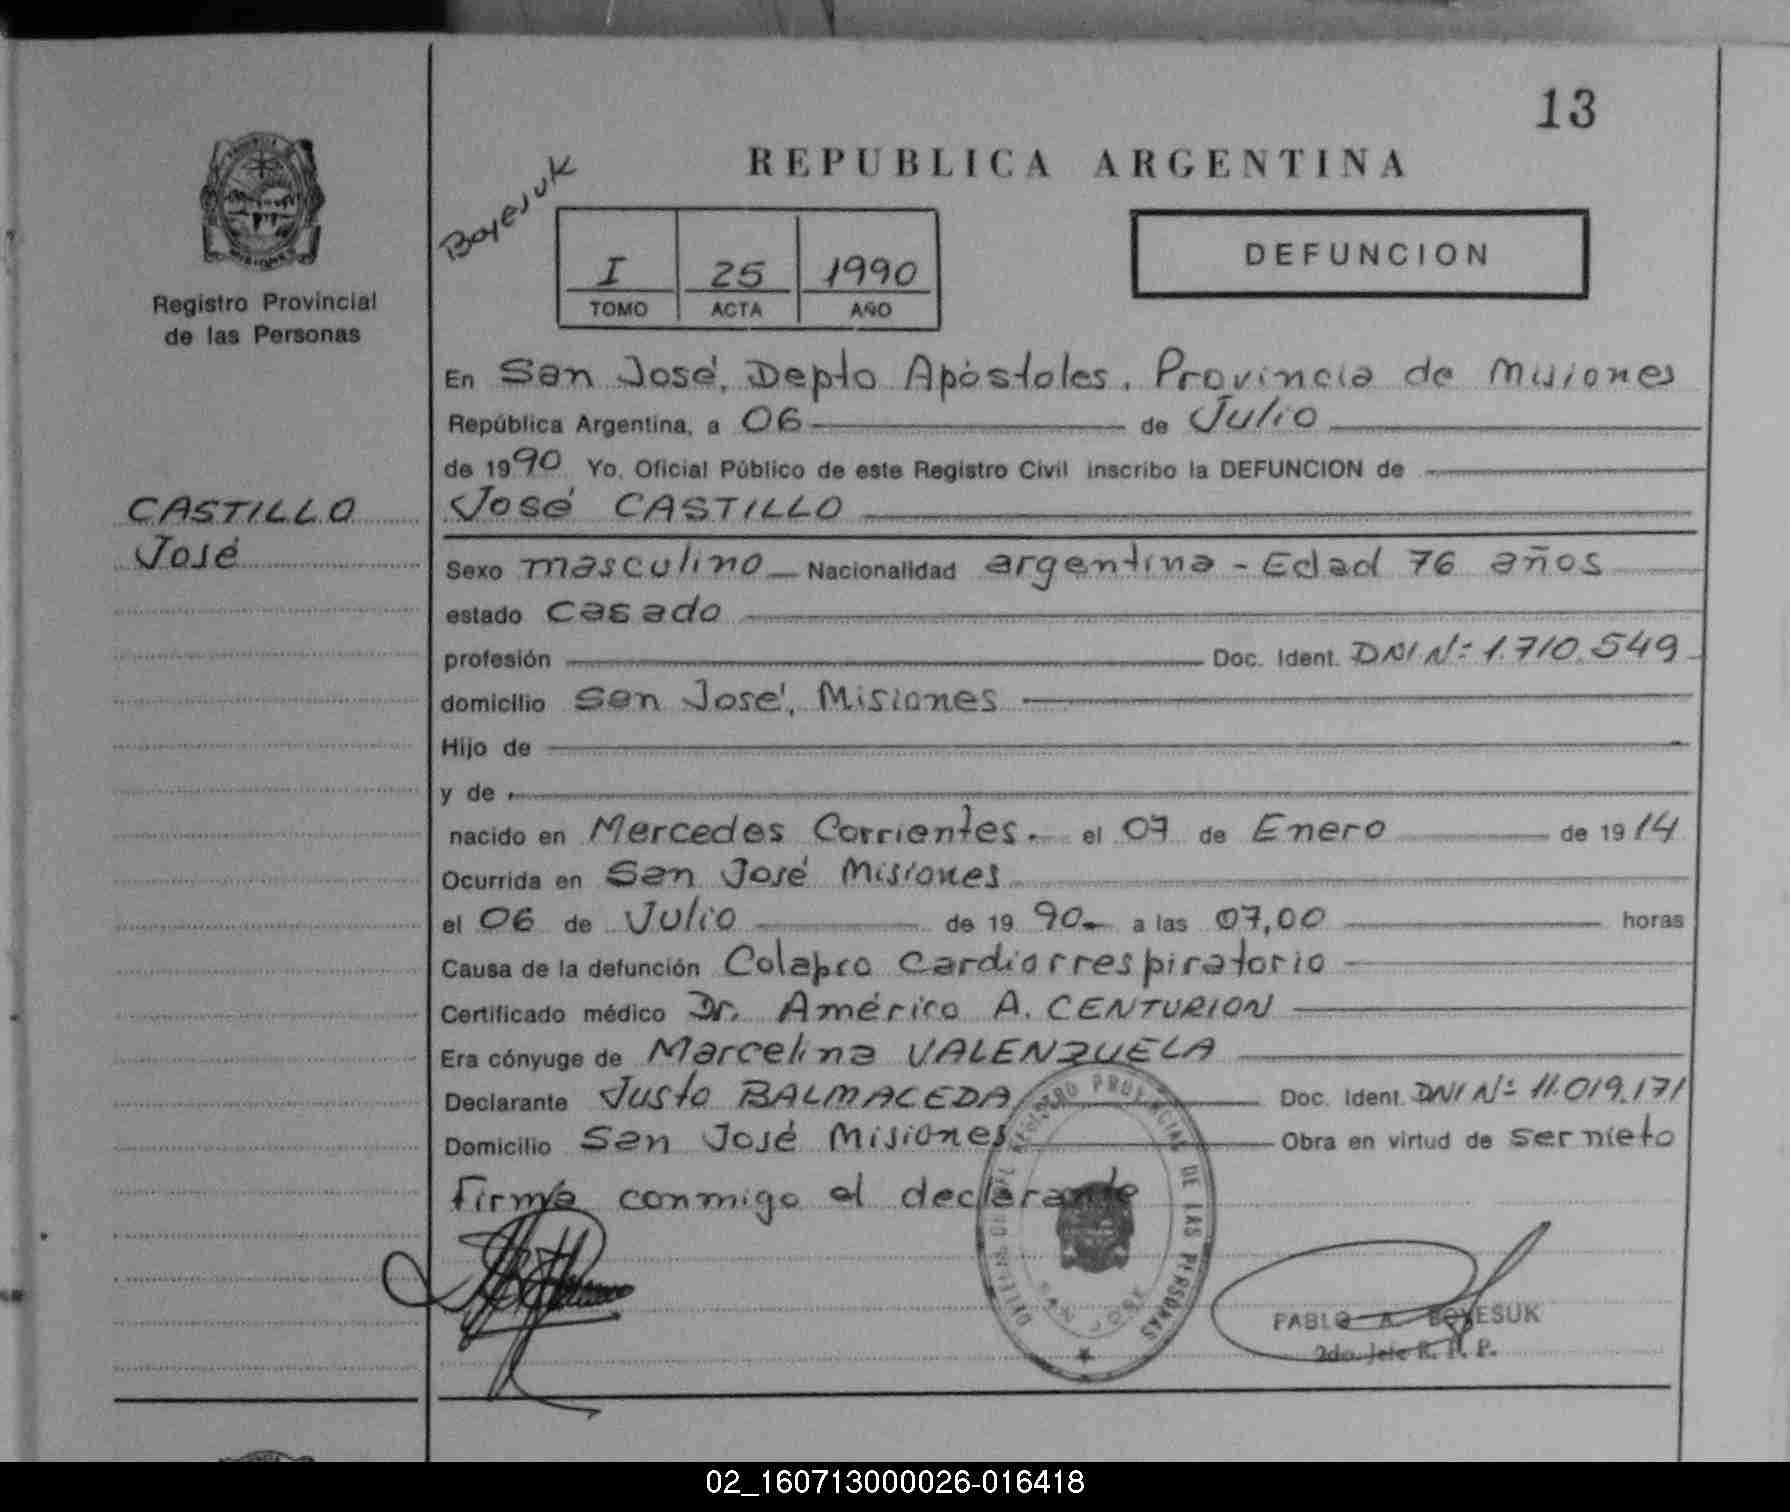 13
REPUBLICA ARGENTINA
Boyesuk
I 25 1990
TOMO ACTA AÑO
DEFUNCION
Registro Provincial
de las Personas
En San José, Depto Apóstoles. Provincia de Misiones
República Argentina, a 06 de Julio
de 1990 Yo, Oficial Público de este Registro Civil inscribo la DEFUNCION de
CASTILLO
José
José CASTILLO
Sexo masculino Nacionalidad argentina - Edad 76 años
estado casado
profesión Doc. Ident. DNI Nº 1.710.549
domicilio San José, Misiones
Hijo de
y de
nacido en Mercedes Corrientes. el 07 de Enero de 1914
Ocurrida en San José Misiones
el 06 de Julio de 1990 a las 07,00 horas
Causa de la defunción Colapso Cardiorrespiratorio
Certificado médico Dr. Américo A. CENTURION
Era cónyuge de Marcelina VALENZUELA
Declarante Justo BALMACEDA Doc. Ident. DNI Nº 11.019.171
Domicilio San José Misiones Obra en virtud de ser nieto
Firma conmigo el declarante
REGISTRO PROVINCIAL DE LAS PERSONAS
SAN JOSE
PABLO A. BOYESUK
2do. Jefe R. P. P.
02_160713000026-016418